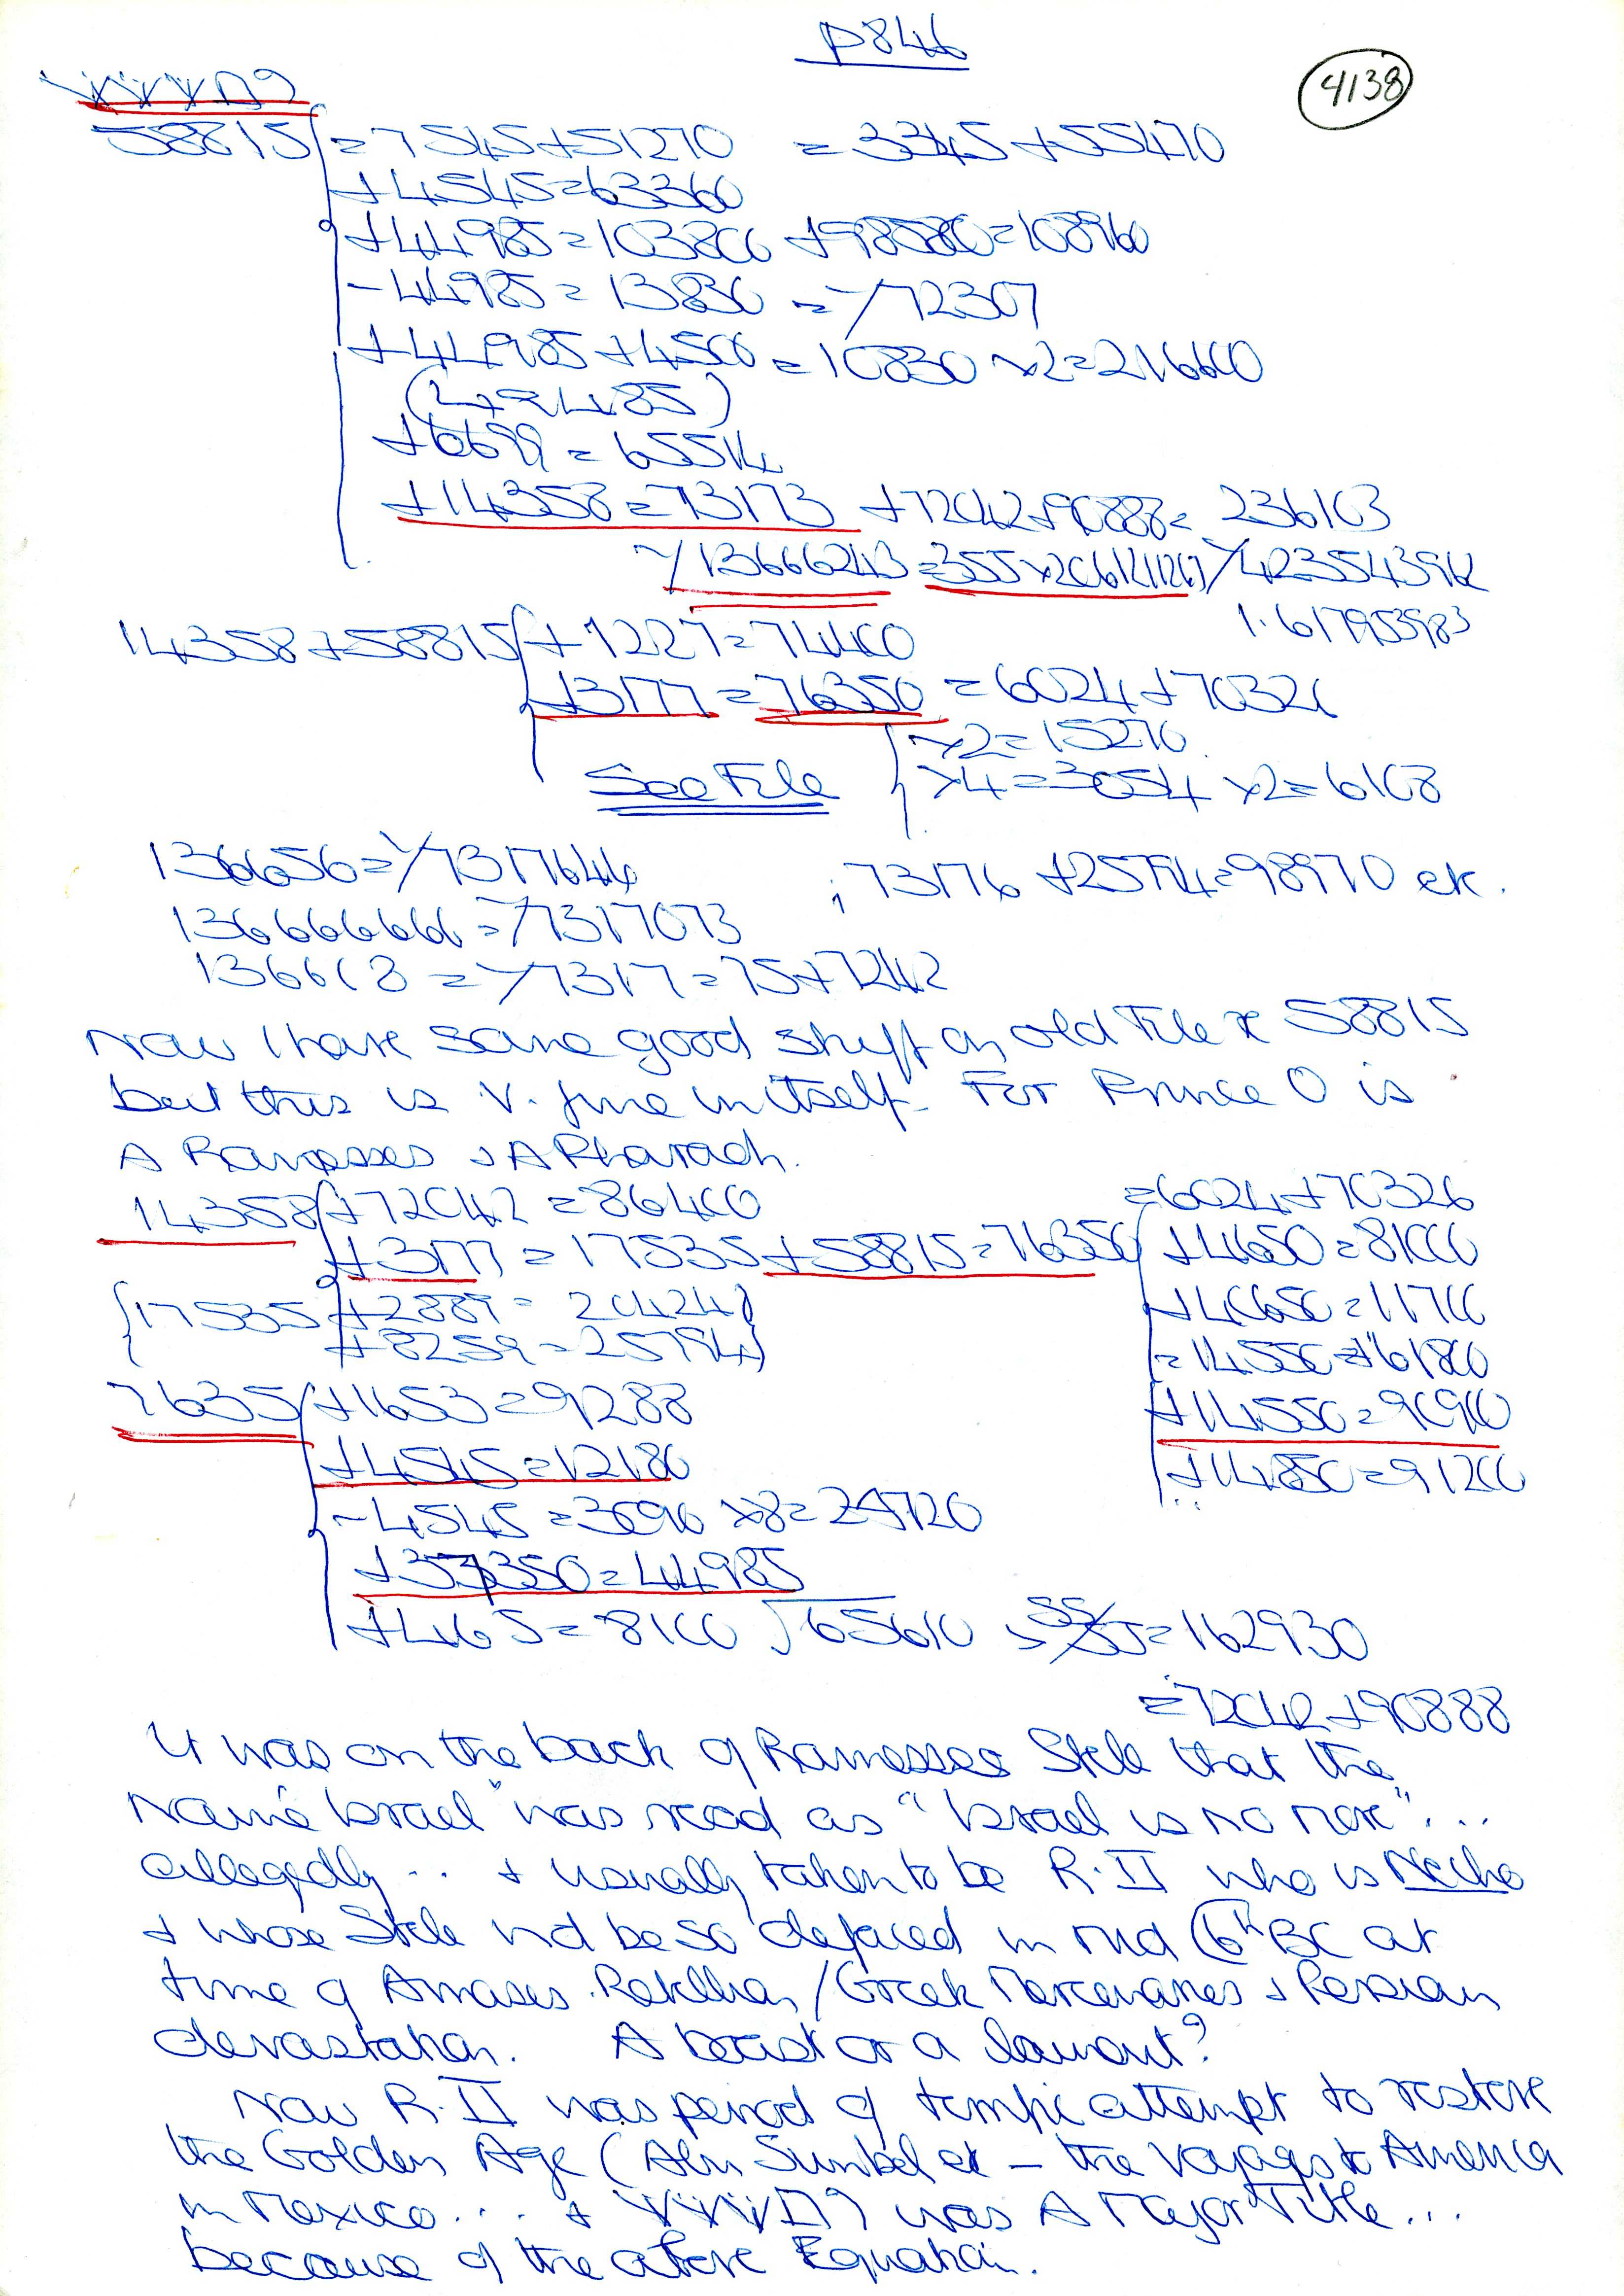 p846
4138
58815 = 7545+51270 = 3345+55470
+4545=63360
+44985=103800 +98580=108960
-44985=13830 = 1/72307
+44985+4500=10830 ×2=21660
(49485)
+6699=65514
+14358=73173 +72042+90888= 236103
1/13666243 =355×2061
1.617953983
14358+58815 +1227=74400
+3177=76350 =6024+70326
×2=15270
See File ×4=3054 ×2=6108
136656=1/7317644 ; 73176 +25794=98970 etc.
136666666=1/7317073
136618 = 1/7317=75+7242
Now I have some good stuff on old File re 58815
but this is v. fine in itself. For Prince O is
A Ramesses & A Pharaoh.
14358 +72042 =86400 =6024+70326
+3177=17535+58815=76350 +4650=81000
17535 +2889=20424 +40650=11700
+8259=25794 =14550+61800
7635 +1653=9288 +14550=90900
+4545=12180 +14850=91200
-4545=3090 ×8=24720
+37350=44985
+465=8100 √65610 =162930
=72042+90888
It was on the back of Ramesses Stele that the
Name "Israel" was read as "Israel is no more"...
allegedly .. + usually taken to be R.II who is Necho
+ whose Stele wd be so defaced in mid 6th BC at
time of Amases Rebellion/Greek Mercenaries & Persian
devastation. A boast or a lament?
Now R.II was period of temple attempt to restore
the Golden Age (Abu Simbel etc – the Voyages to America
in Mexico... + was A Major Title...
because of the above Equation.